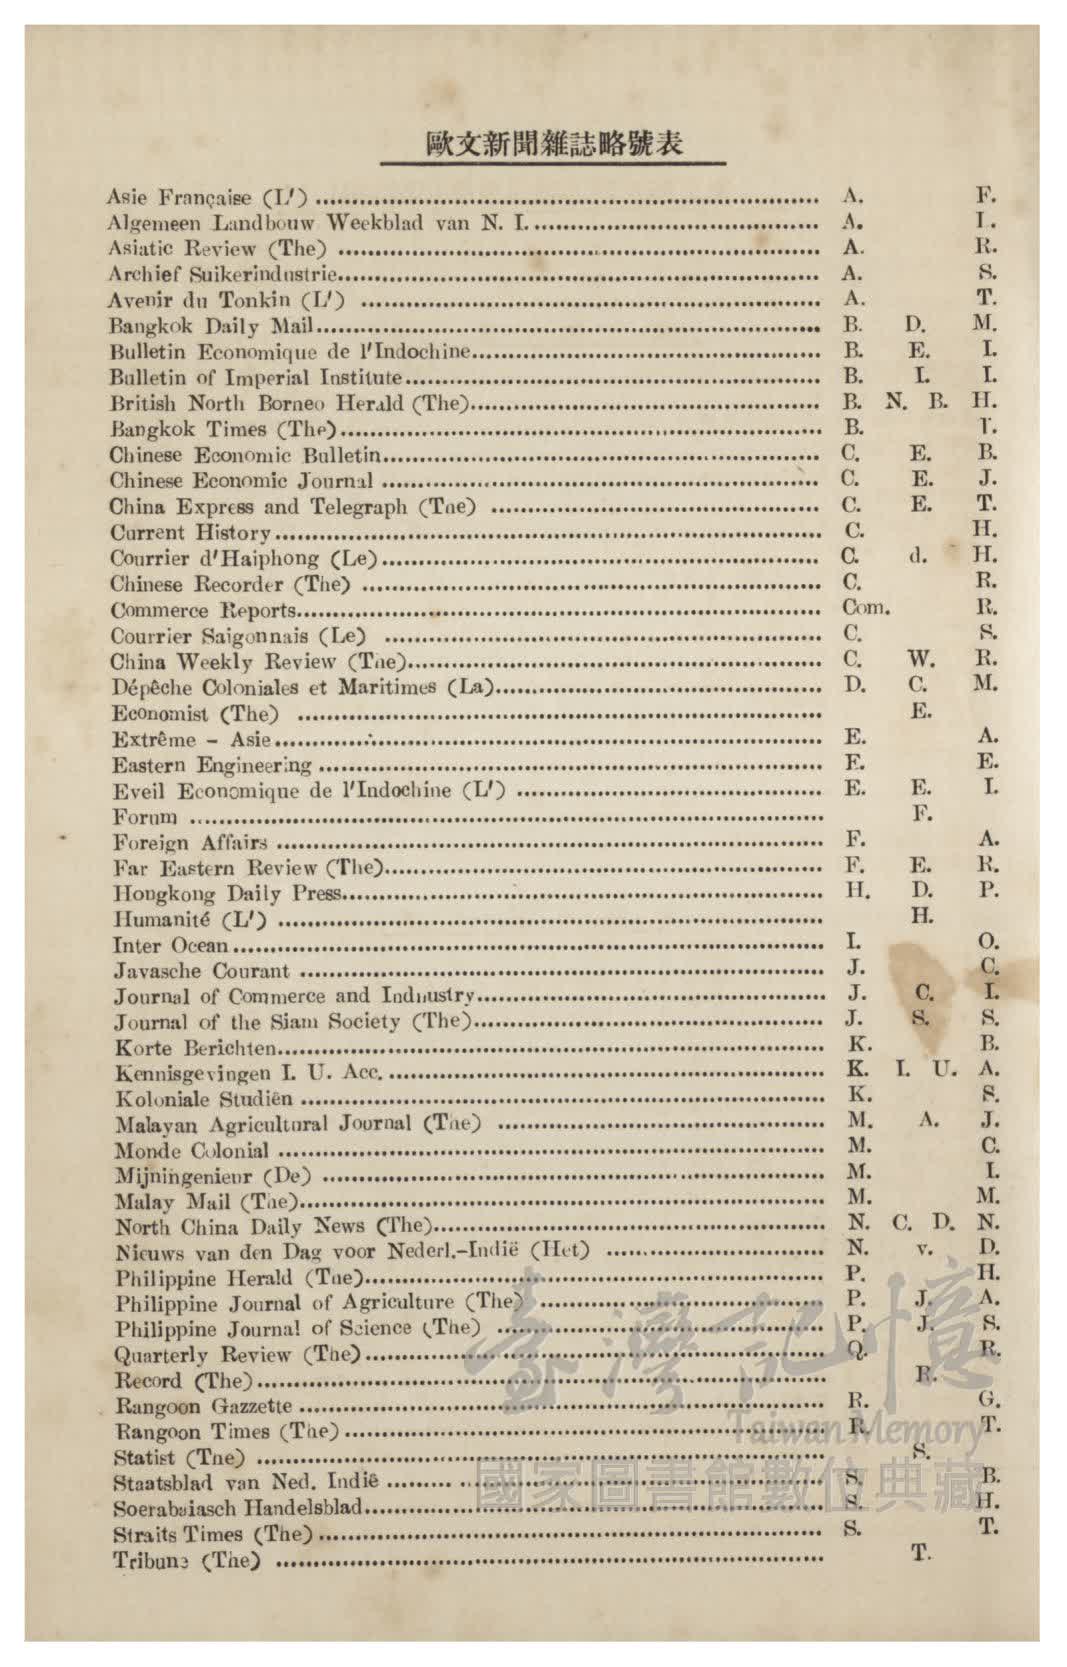 歐文新聞雜誌略號表
Asie Française (L') A. F.
Algemeen Landbouw Weekblad van N. I. A. L.
Asiatic Review (The) A. R.
Archief Suikerindustrie A. S.
Avenir du Tonkin (L') A. T.
Bangkok Daily Mail B. D. M.
Bulletin Economique de l'Indochine B. E. I.
Bulletin of Imperial Institute B. I. I.
British North Borneo Herald (The) B. N. B. H.
Bangkok Times (The) B. T.
Chinese Economic Bulletin C. E. B.
Chinese Economic Journal C. E. J.
China Express and Telegraph (The) C. E. T.
Current History C. H.
Courrier d'Haiphong (Le) C. d. H.
Chinese Recorder (The) C. R.
Commerce Reports Com. R.
Courrier Saigonnais (Le) C. S.
China Weekly Review (The) C. W. R.
Dépêche Coloniales et Maritimes (La) D. C. M.
Economist (The) E.
Extrême - Asie E. A.
Eastern Engineering E. E.
Eveil Economique de l'Indochine (L') E. E. I.
Forum F.
Foreign Affairs F. A.
Far Eastern Review (The) F. E. R.
Hongkong Daily Press H. D. P.
Humanité (L') H.
Inter Ocean I. O.
Javasche Courant J. C.
Journal of Commerce and Indnustry J. C. I.
Journal of the Siam Society (The) J. S. S.
Korte Berichten K. B.
Kennisgevingen I. U. Acc. K. I. U. A.
Koloniale Studiën K. S.
Malayan Agricultural Journal (The) M. A. J.
Monde Colonial M. C.
Mijningenieur (De) M. I.
Malay Mail (The) M. M.
North China Daily News (The) N. C. D. N.
Nieuws van den Dag voor Nederl.-Indië (Het) N. v. D.
Philippine Herald (The) P. H.
Philippine Journal of Agriculture (The) P. J. A.
Philippine Journal of Science (The) P. J. S.
Quarterly Review (The) Q. R.
Record (The) R.
Rangoon Gazzette R. G.
Rangoon Times (The) R. T.
Statist (The) S.
Staatsblad van Ned. Indië S. B.
Soerabaiasch Handelsblad S. H.
Straits Times (The) S. T.
Tribune (The) T.
臺灣記憶
Taiwan Memory
國家圖書館數位典藏